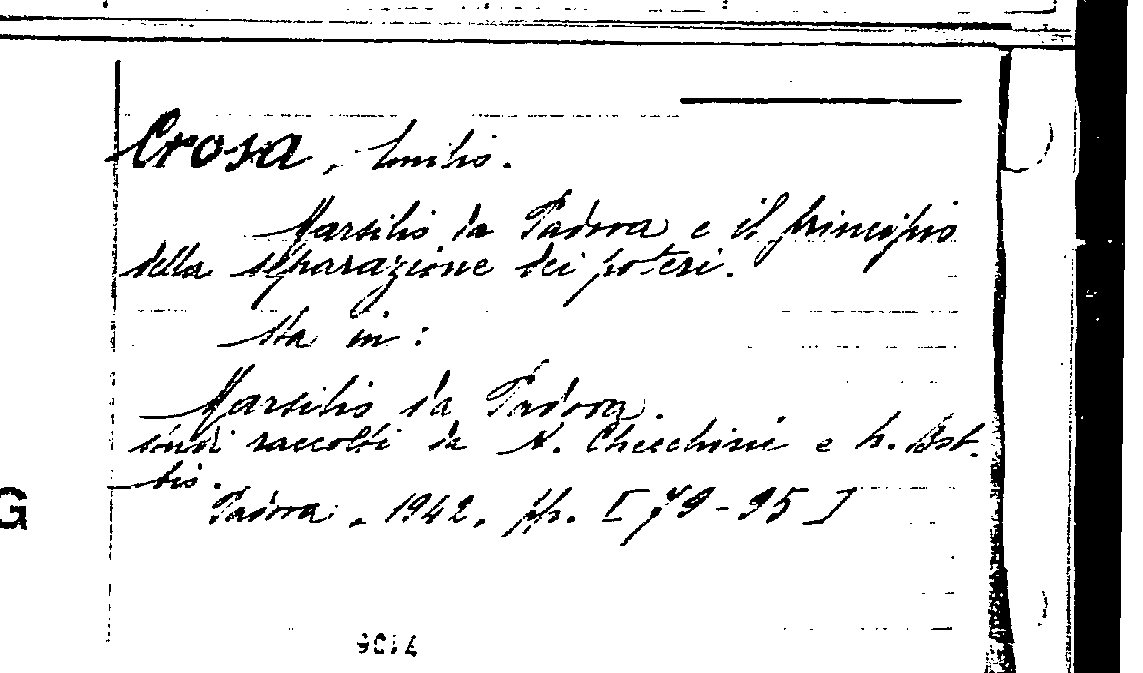 Crosa, Emilio.
Marsilio da Padova e il principio
della separazione dei poteri.
Sta in:
Marsilio da Padova.
studi raccolti da A. Checchini e N. Bob-
bio.
Padova, 1942, pp. [79-95]
G